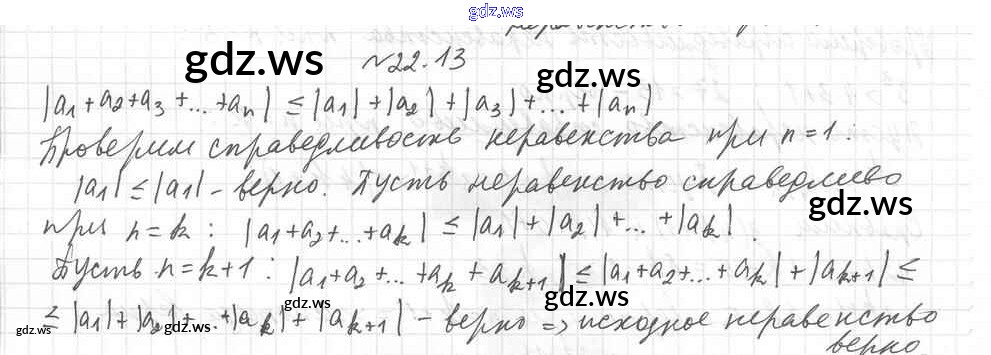 gdz.ws
№22.13
gdz.ws
gdz.ws
|a₁+a₂+a₃+...+aₙ| ≤ |a₁|+|a₂|+|a₃|+...+|aₙ|
Проверим справедливость неравенства при n=1:
|a₁| ≤ |a₁| - верно. Пусть неравенство справедливо
gdz.ws
при n=k: |a₁+a₂+...+aₖ| ≤ |a₁|+|a₂|+...+|aₖ|.
Пусть n=k+1: |a₁+a₂+...+aₖ+aₖ₊₁| ≤ |a₁+a₂+...+aₖ|+|aₖ₊₁| ≤
gdz.ws
gdz.ws
≤ |a₁|+|a₂|+...+|aₖ|+|aₖ₊₁| - верно => исходное неравенство
gdz.ws
gdz.ws
верно